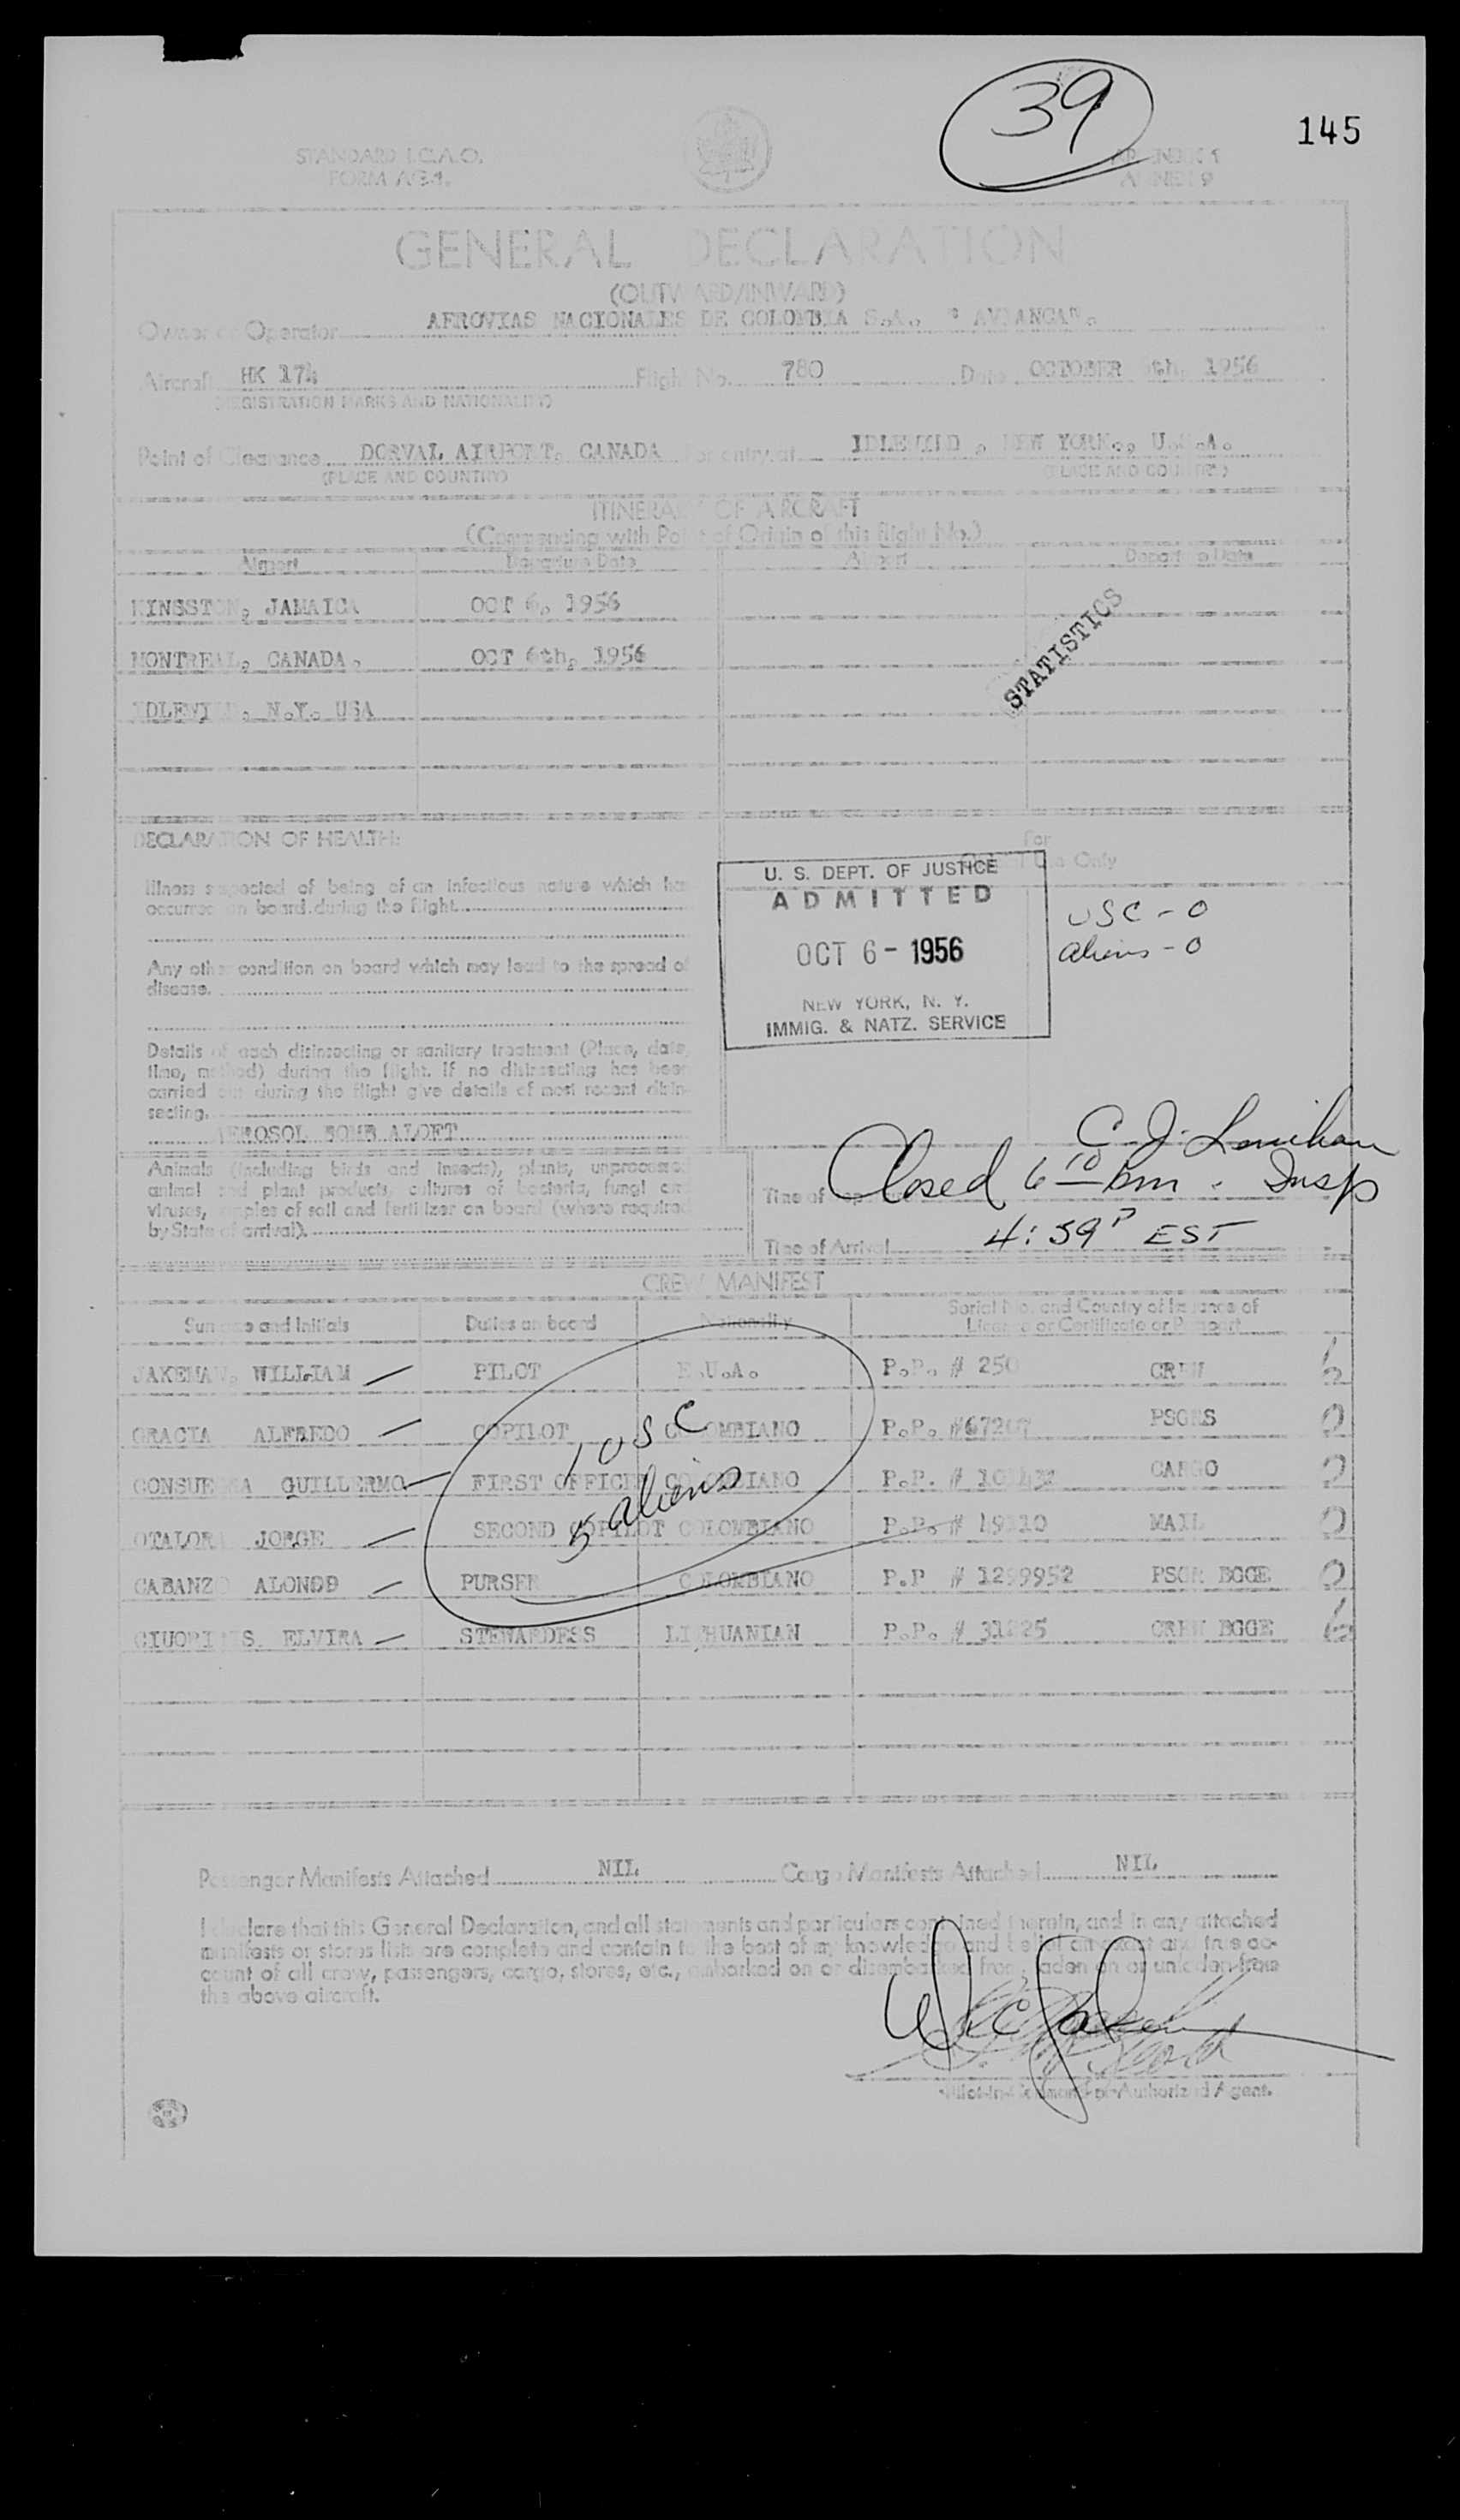 39
145
STANDARD I.C.A.O.
ANNEX 9
GENERAL DECLARATION
(OUTWARD/INWARD)
Owner or Operator AEROVIAS NACIONALES DE COLOMBIA S.A. " AVIANCA".
Aircraft HK 174 Flight No. 780 Date OCTOBER 1956
(REGISTRATION MARKS AND NATIONALITY)
Point of Clearance DORVAL AIRPORT, CANADA For entry at IDLEWILD , NEW YORK., U.S.A.
(PLACE AND COUNTRY) (PLACE AND COUNTRY)
ITINERARY OF AIRCRAFT
(Commencing with Point of Origin of this flight No.)
Airport Departure Date Airport Departure Date
KINGSTON, JAMAICA OCT 6, 1956
MONTREAL, CANADA, OCT 6th, 1956
IDLEWILD, N.Y. USA
STATISTICS
DECLARATION OF HEALTH:
For
Official Use Only
Illness suspected of being of an infectious nature which has
occurred on board during the flight.
Any other condition on board which may lead to the spread of
disease.
Details of each disinsecting or sanitary treatment (Place, date,
time, method) during the flight. If no disinsecting has been
carried out during the flight give details of most recent disin-
secting.
AEROSOL BOMB ALOFT
U. S. DEPT. OF JUSTICE
ADMITTED
OCT 6 - 1956
NEW YORK, N. Y.
IMMIG. & NATZ. SERVICE
USC - 0
aliens - 0
Animals (including birds and insects), plants, unprocessed
animal and plant products, cultures of bacteria, fungi and
viruses, samples of soil and fertilizer on board (where required
by State of arrival).
C. J. Lenihan
Time of
Closed 6 10 pm. Insp
Time of Arrival 4:59P EST
CREW MANIFEST
Surname and Initials Duties on board Nationality Serial No. and Country of Issuance of
License or Certificate or Passport
WILLIAM PILOT E.U.A. P.P. # 250 CREW 6
GRACIA ALFREDO COPILOT COLOMBIANO P.P. PSGRS 0
GUILLERMO FIRST OFFICER COLOMBIANO P.P. # CARGO 0
OTALORA JORGE SECOND COPILOT COLOMBIANO P.P. # MAIL 0
CABANZO PURSER COLOMBIANO P.P # PSGR BGGE 0
ELVIRA STEWARDESS LITHUANIAN P.P. # CREW BGGE 6
1 USC
5 aliens
Passenger Manifests Attached NIL Cargo Manifests Attached NIL
I declare that this General Declaration, and all statements and particulars contained therein, and in any attached
manifests or stores lists are complete and contain to the best of my knowledge and belief an exact and true ac-
count of all crew, passengers, cargo, stores, etc., embarked on or disembarked from, laden on or unladen from
the above aircraft.
Pilot-in-Command or Authorized Agent.